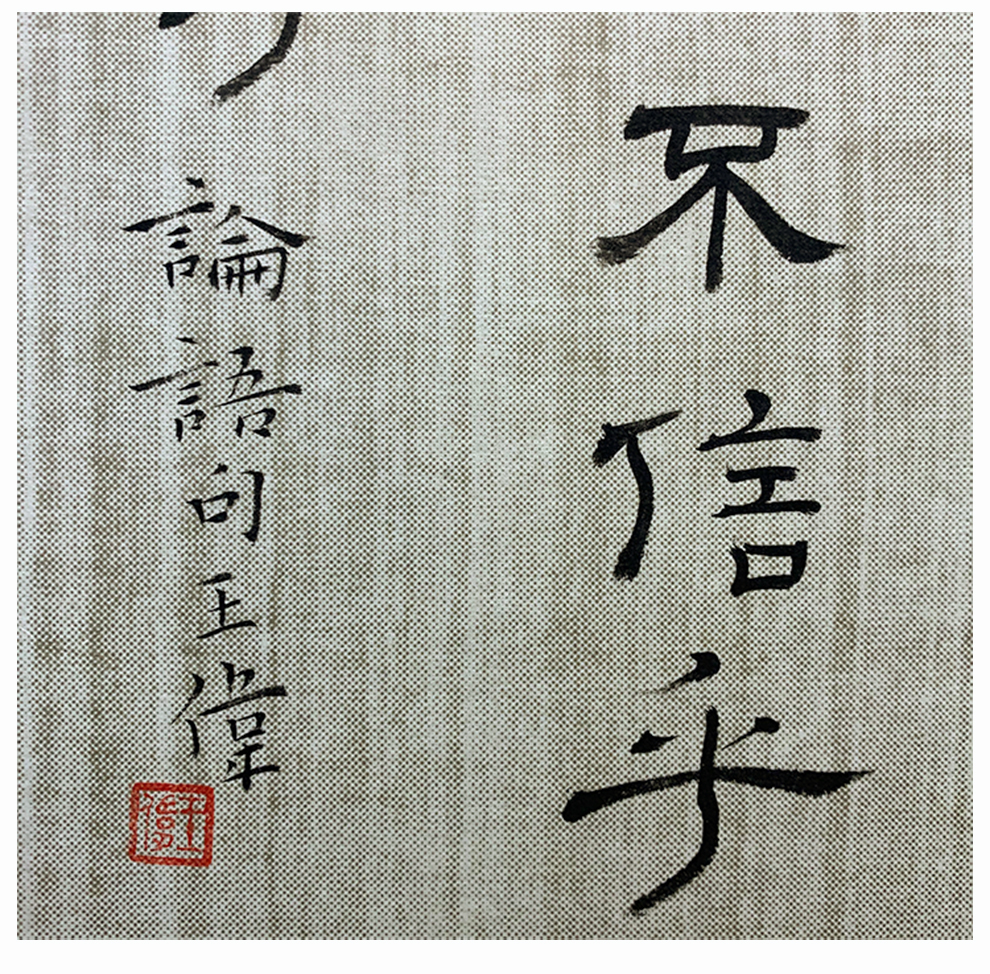 不信乎
論語句王偉
王偉